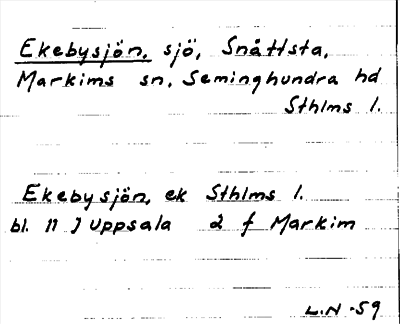 Ekebysjön, sjö, Snåttsta,
Markims sn, Seminghundra hd
Sthlms l.
Ekebysjön, ek Sthlms l.
bl. 11 J Uppsala 2 f Markim
L.N -59